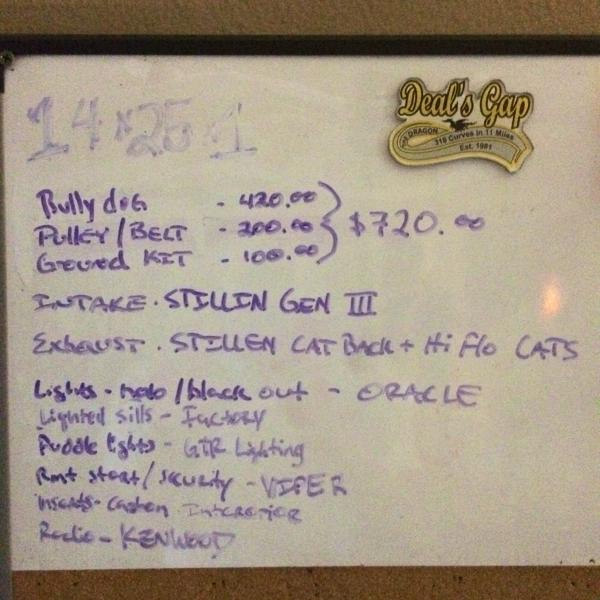 14x25-1
Deal's Gap
THE DRAGON 318 Curves in 11 Miles
Est. 1981
Bully dog - 420.00
PULLEY/BELT - 200.00 $720.00
Ground KIT - 100.00
INTAKE. STILLIN GEN III
Exhaust. STILLEN CAT BACK + Hi Flo CATS
Lights - halo/black out - ORACLE
Lighted sills - Factory
Puddle lights - GTR Lighting
Rmt start/security - VIPER
Inserts - Custom Interior
Radio - KENWOOD